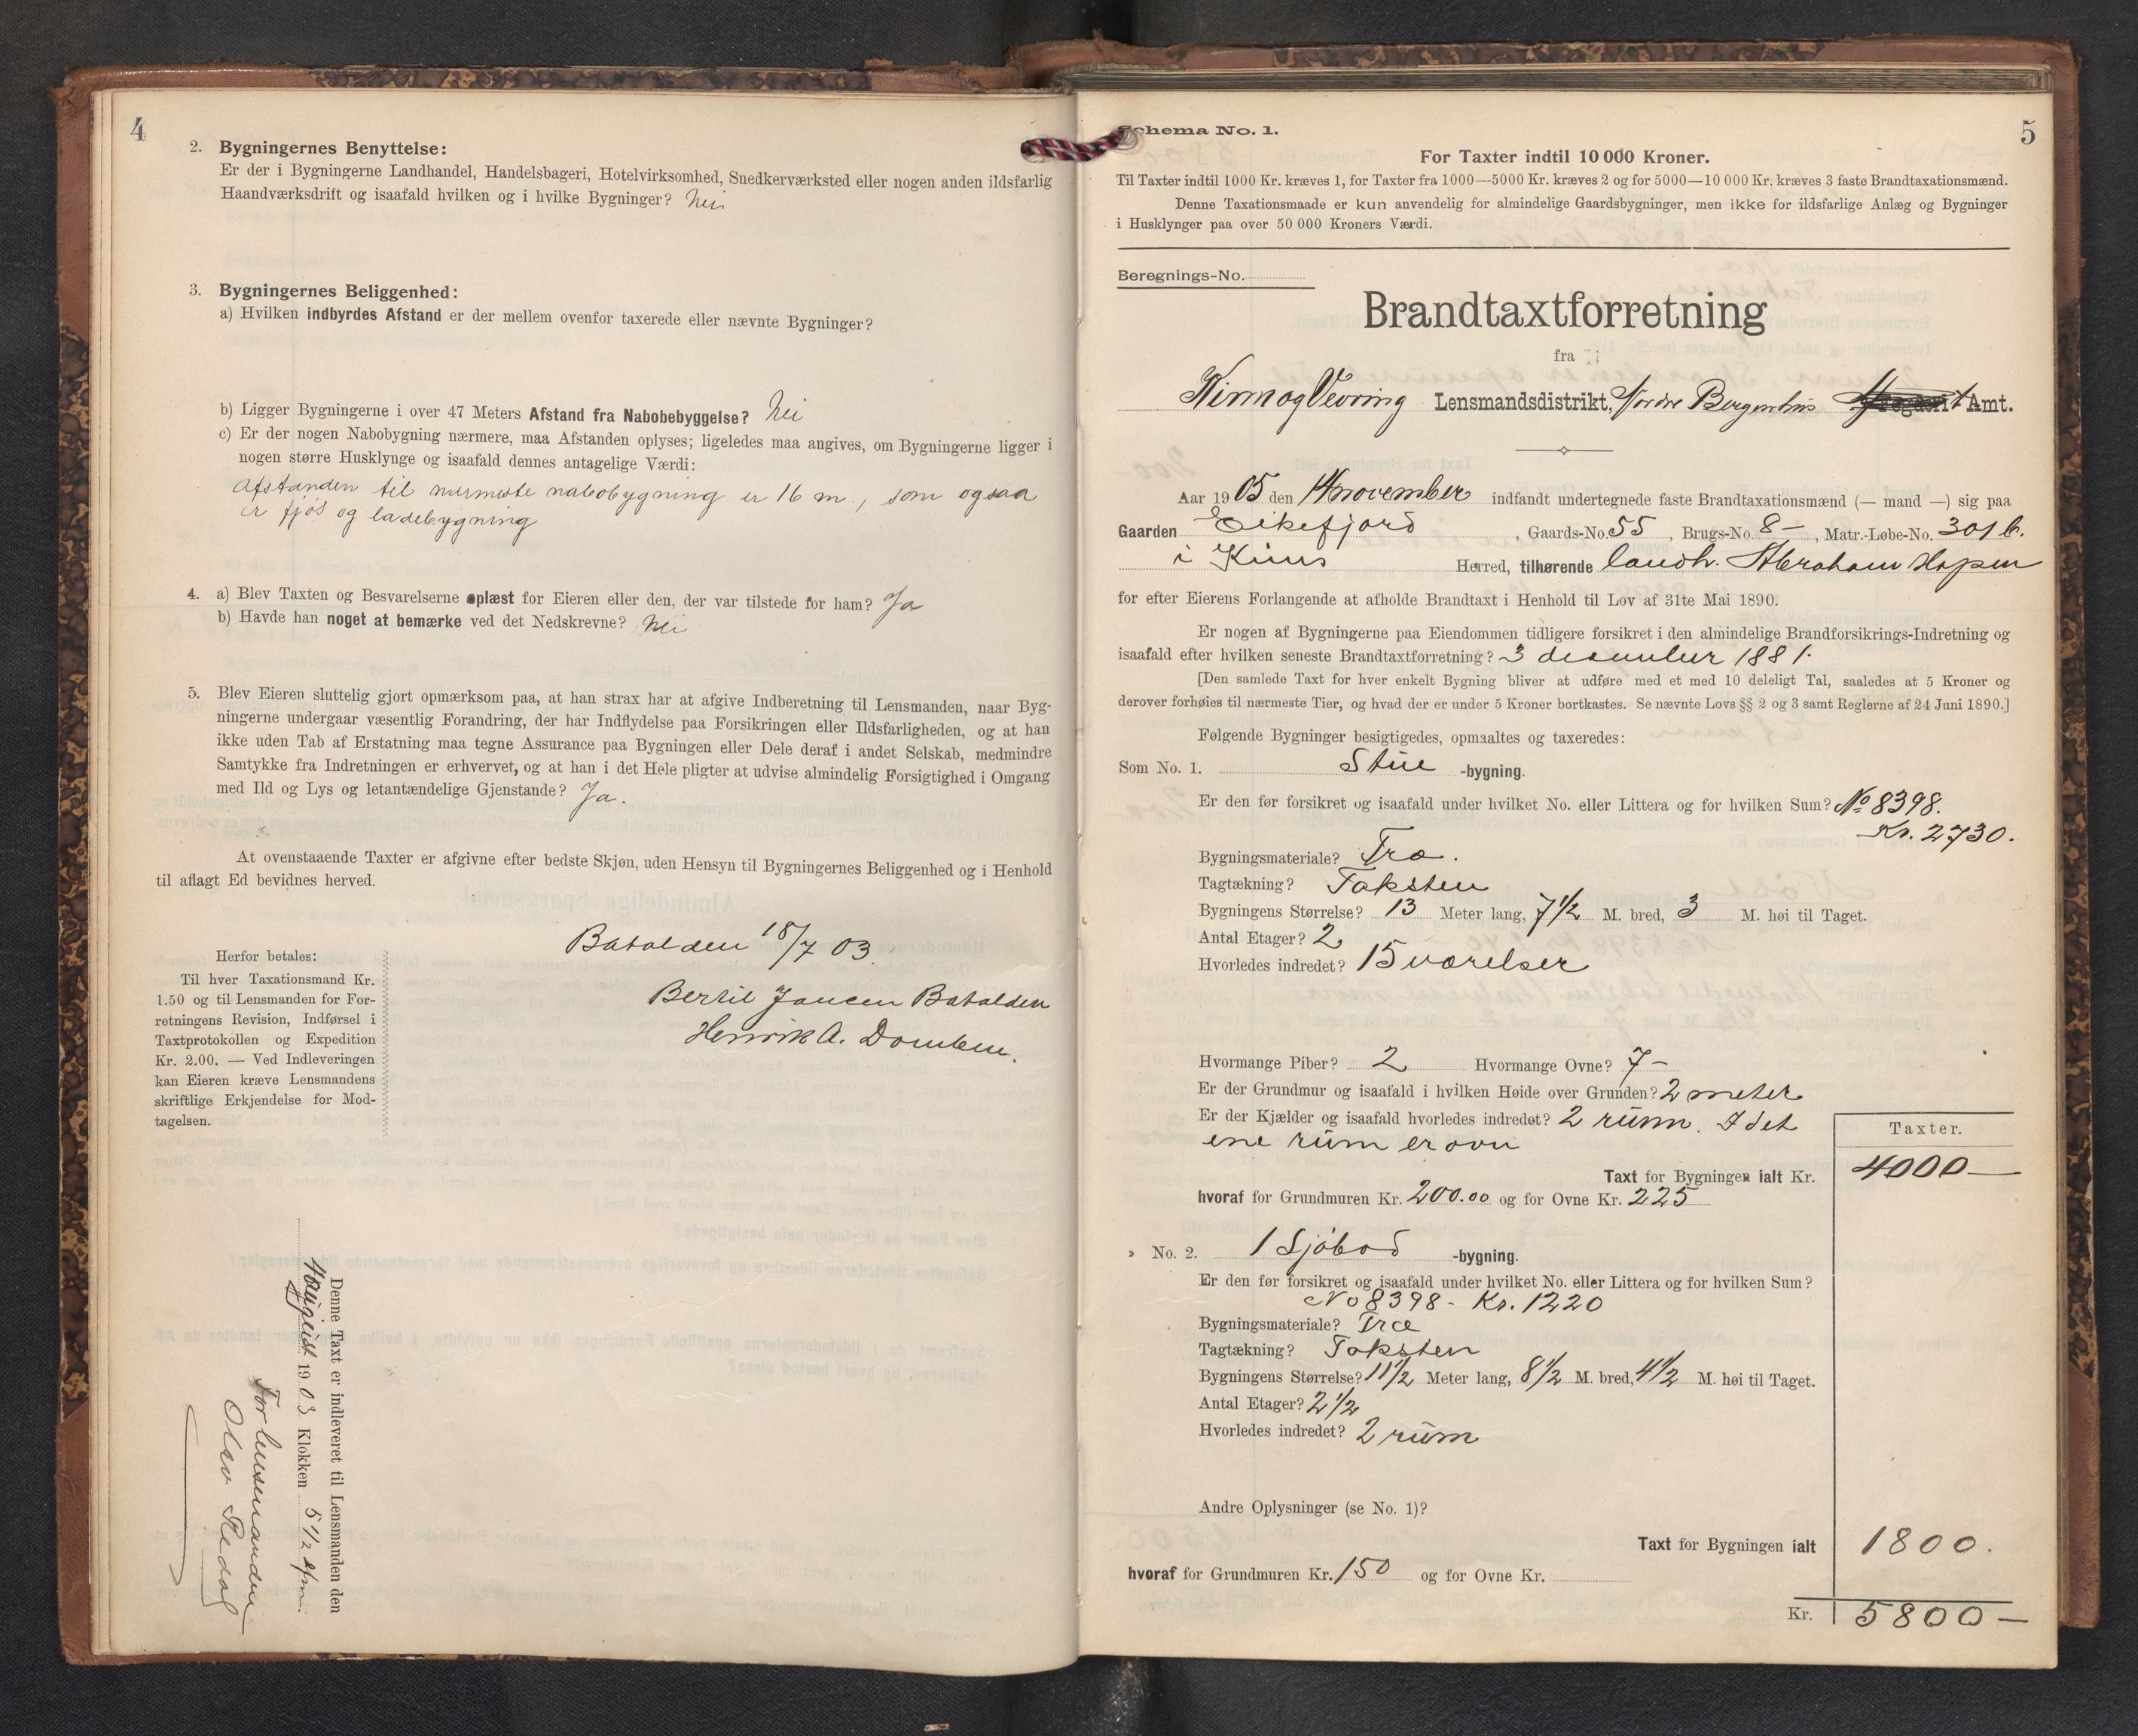 4
2. Bygningernes Benyttelse:
Er der i Bygningerne Landhandel, Handelsbageri, Hotelvirksomhed, Snedkerværksted eller nogen anden ildsfarlig
Haandværksdrift og isaafald hvilken og i hvilke Bygninger? Nei
3. Bygningernes Beliggenhed:
a) Hvilken indbyrdes Afstand er der mellem ovenfor taxerede eller nævnte Bygninger?
b) Ligger Bygningerne i over 47 Meters Afstand fra Nabobebyggelse? Nei
c) Er der nogen Nabobygning nærmere, maa Afstanden oplyses; ligeledes maa angives, om Bygningerne ligger i
nogen større Husklynge og isaafald dennes antagelige Værdi:
Afstanden til nærmeste nabobygning er 16 m, som ogsaa
er fjøs og ladebygning
4. a) Blev Taxten og Besvarelserne oplæst for Eieren eller den, der var tilstede for ham? Ja
b) Havde han noget at bemærke ved det Nedskrevne? Nei
5. Blev Eieren sluttelig gjort opmærksom paa, at han strax har at afgive Indberetning til Lensmanden, naar Byg-
ningerne undergaar væsentlig Forandring, der har Indflydelse paa Forsikringen eller Ildsfarligheden, og at han
ikke uden Tab af Erstatning maa tegne Assurance paa Bygningen eller Dele deraf i andet Selskab, medmindre
Samtykke fra Indretningen er erhvervet, og at han i det Hele pligter at udvise almindelig Forsigtighed i Omgang
med Ild og Lys og letantændelige Gjenstande? Ja.
At ovenstaaende Taxter er afgivne efter bedste Skjøn, uden Hensyn til Bygningernes Beliggenhed og i Henhold
til aflagt Ed bevidnes herved.
Batalden 18/7 03.
Bertil Jansen Batalden
Henrik A. Domben.
Herfor betales:
Til hver Taxationsmand Kr.
1.50 og til Lensmanden for For-
retningens Revision, Indførsel i
Taxtprotokollen og Expedition
Kr. 2.00. — Ved Indleveringen
kan Eieren kræve Lensmandens
skriftlige Erkjendelse for Mod-
tagelsen.
Denne Taxt er indleveret til Lensmanden den
4 august 1903 Klokken 5 1/2 e/m.
For lensmanden
Olav Redal
5
Schema No. 1.
For Taxter indtil 10 000 Kroner.
Til Taxter indtil 1000 Kr. kræves 1, for Taxter fra 1000—5000 Kr. kræves 2 og for 5000—10 000 Kr. kræves 3 faste Brandtaxationsmænd.
Denne Taxationsmaade er kun anvendelig for almindelige Gaardsbygninger, men ikke for ildsfarlige Anlæg og Bygninger
i Husklynger paa over 50 000 Kroners Værdi.
Beregnings-No.
Brandtaxtforretning
fra
Kinn og Vevring Lensmandsdistrikt, Nordre Bergenhus Amt.
Aar 1905 den 14 november indfandt undertegnede faste Brandtaxationsmænd (— mand —) sig paa
Gaarden Eikefjord, Gaards-No. 55, Brugs-No. 8 –, Matr.-Løbe-No. 301 b.
i Kinns Herred, tilhørende landh. Abraham Hopen
for efter Eierens Forlangende at afholde Brandtaxt i Henhold til Lov af 31te Mai 1890.
Er nogen af Bygningerne paa Eiendommen tidligere forsikret i den almindelige Brandforsikrings-Indretning og
isaafald efter hvilken seneste Brandtaxtforretning? 3 december 1881.
[Den samlede Taxt for hver enkelt Bygning bliver at udføre med et med 10 deleligt Tal, saaledes at 5 Kroner og
derover forhøies til nærmeste Tier, og hvad der er under 5 Kroner bortkastes. Se nævnte Lovs §§ 2 og 3 samt Reglerne af 24 Juni 1890.]
Følgende Bygninger besigtigedes, opmaaltes og taxeredes:
Som No. 1. Stue -bygning.
Er den før forsikret og isaafald under hvilket No. eller Littera og for hvilken Sum? No 8398.
Kr. 2730.
Bygningsmateriale? Træ.
Tagtækning? Taksten
Bygningens Størrelse? 13 Meter lang, 7 1/2 M. bred, 3 M. høi til Taget.
Antal Etager? 2
Hvorledes indredet? 15 værelser
Hvormange Piber? 2 Hvormange Ovne? 7 –
Er der Grundmur og isaafald i hvilken Høide over Grunden? 2 meter
Er der Kjælder og isaafald hvorledes indredet? 2 rum. I det
ene rum er ovn
Taxter.
Taxt for Bygningen ialt Kr. 4000 —
hvoraf for Grundmuren Kr. 200.00 og for Ovne Kr. 225
» No. 2. 1 Sjøbod -bygning.
Er den før forsikret og isaafald under hvilket No. eller Littera og for hvilken Sum?
No 8398 - Kr. 1220
Bygningsmateriale? Træ
Tagtækning? Taksten
Bygningens Størrelse? 11 1/2 Meter lang, 8 1/2 M. bred, 4 1/2 M. høi til Taget.
Antal Etager? 2 1/2
Hvorledes indredet? 2 rum
Andre Oplysninger (se No. 1)?
Taxt for Bygningen ialt 1800.
hvoraf for Grundmuren Kr. 150 og for Ovne Kr.
Kr. 5800 —